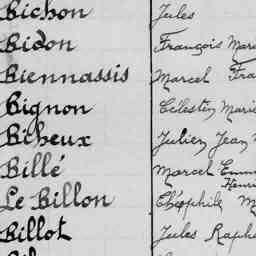 Bichon Jules
Bidon François Mari
Biennassis Marcel Fra
Bignon Célestin Marie
Biheux Julien Jean
Billé Marcel Emm
Henri
Le Billon Théophile M
Billot Jules Raph